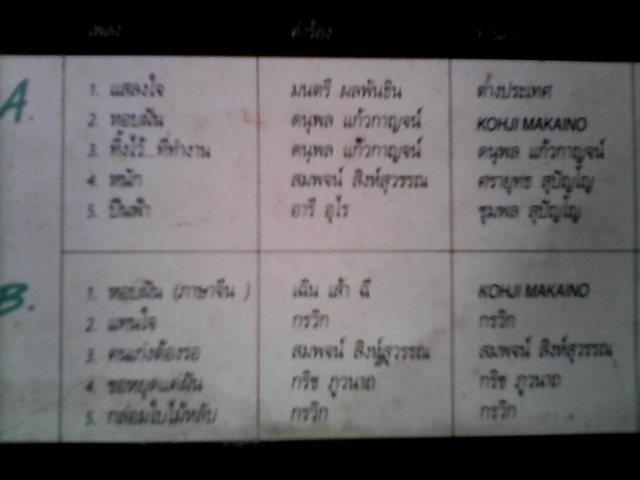 เพลง คำร้อง
A.
1. แสลงใจ มนตรี ผลพันธิน ต่างประเทศ
2. หอบฝัน ดนุพล แก้วกาญจน์ KOHJI MAKAINO
3. ทิ้งไว้ ที่ทำงาน ดนุพล แก้วกาญจน์ ดนุพล แก้วกาญจน์
4. หนัก สมพจน์ สิงห์สุวรรณ ศรายุทธ สุปัญโญ
5. ปีนฟ้า อารี อุไร ชุมพล สุปัญโญ
B.
1. หอบฝัน (ภาษาจีน ) เฉิน เส้า ฉี KOHJI MAKAINO
2. แทนใจ กรวิก กรวิก
3. คนเก่งต้องรอ สมพจน์ สิงห์สุวรรณ สมพจน์ สิงห์สุวรรณ
4. ขอหยุดแค่ฝัน กริช ภูวนาถ กริช ภูวนาถ
5. กล่อมใบไม้หลับ กรวิก กรวิก